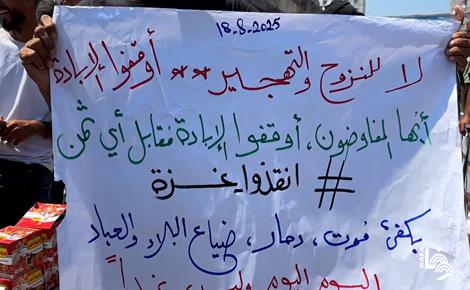 18.8.2025
لا للنزوح والتهجير ** أوقفوا الإبادة
أيها المفاوضون، أوقفوا الإبادة مقابل أي ثمن
# انقذوا_غزة
يكفي موت، دمار، ضياع البلاد والعباد
اليوم اليوم وليس غداً
وفا
WAFA